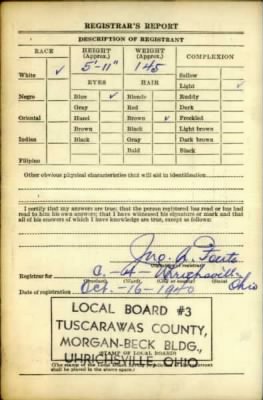 REGISTRAR'S REPORT
DESCRIPTION OF REGISTRANT
RACE HEIGHT (Approx.) WEIGHT (Approx.) COMPLEXION
5'-11" 145
White ✓ Sallow
EYES HAIR Light ✓
Negro Blue ✓ Blonde Ruddy
Gray Red Dark
Oriental Hazel Brown ✓ Freckled
Brown Black Light brown
Indian Black Gray Dark brown
Bald Black
Filipino
Other obvious physical characteristics that will aid in identification
I certify that my answers are true; that the person registered has read or has had
read to him his own answers; that I have witnessed his signature or mark and that
all of his answers of which I have knowledge are true, except as follows:
Registrar for C. 4 Uhrichsville Ohio
(Precinct) (Ward) (City or county) (State)
Date of registration Oct-16-1940
LOCAL BOARD #3
TUSCARAWAS COUNTY,
MORGAN-BECK BLDG.,
UHRICHSVILLE, OHIO
(STAMP OF LOCAL BOARD)
(The stamp of the Local Board having jurisdiction of the registrant
shall be placed in the above space.)